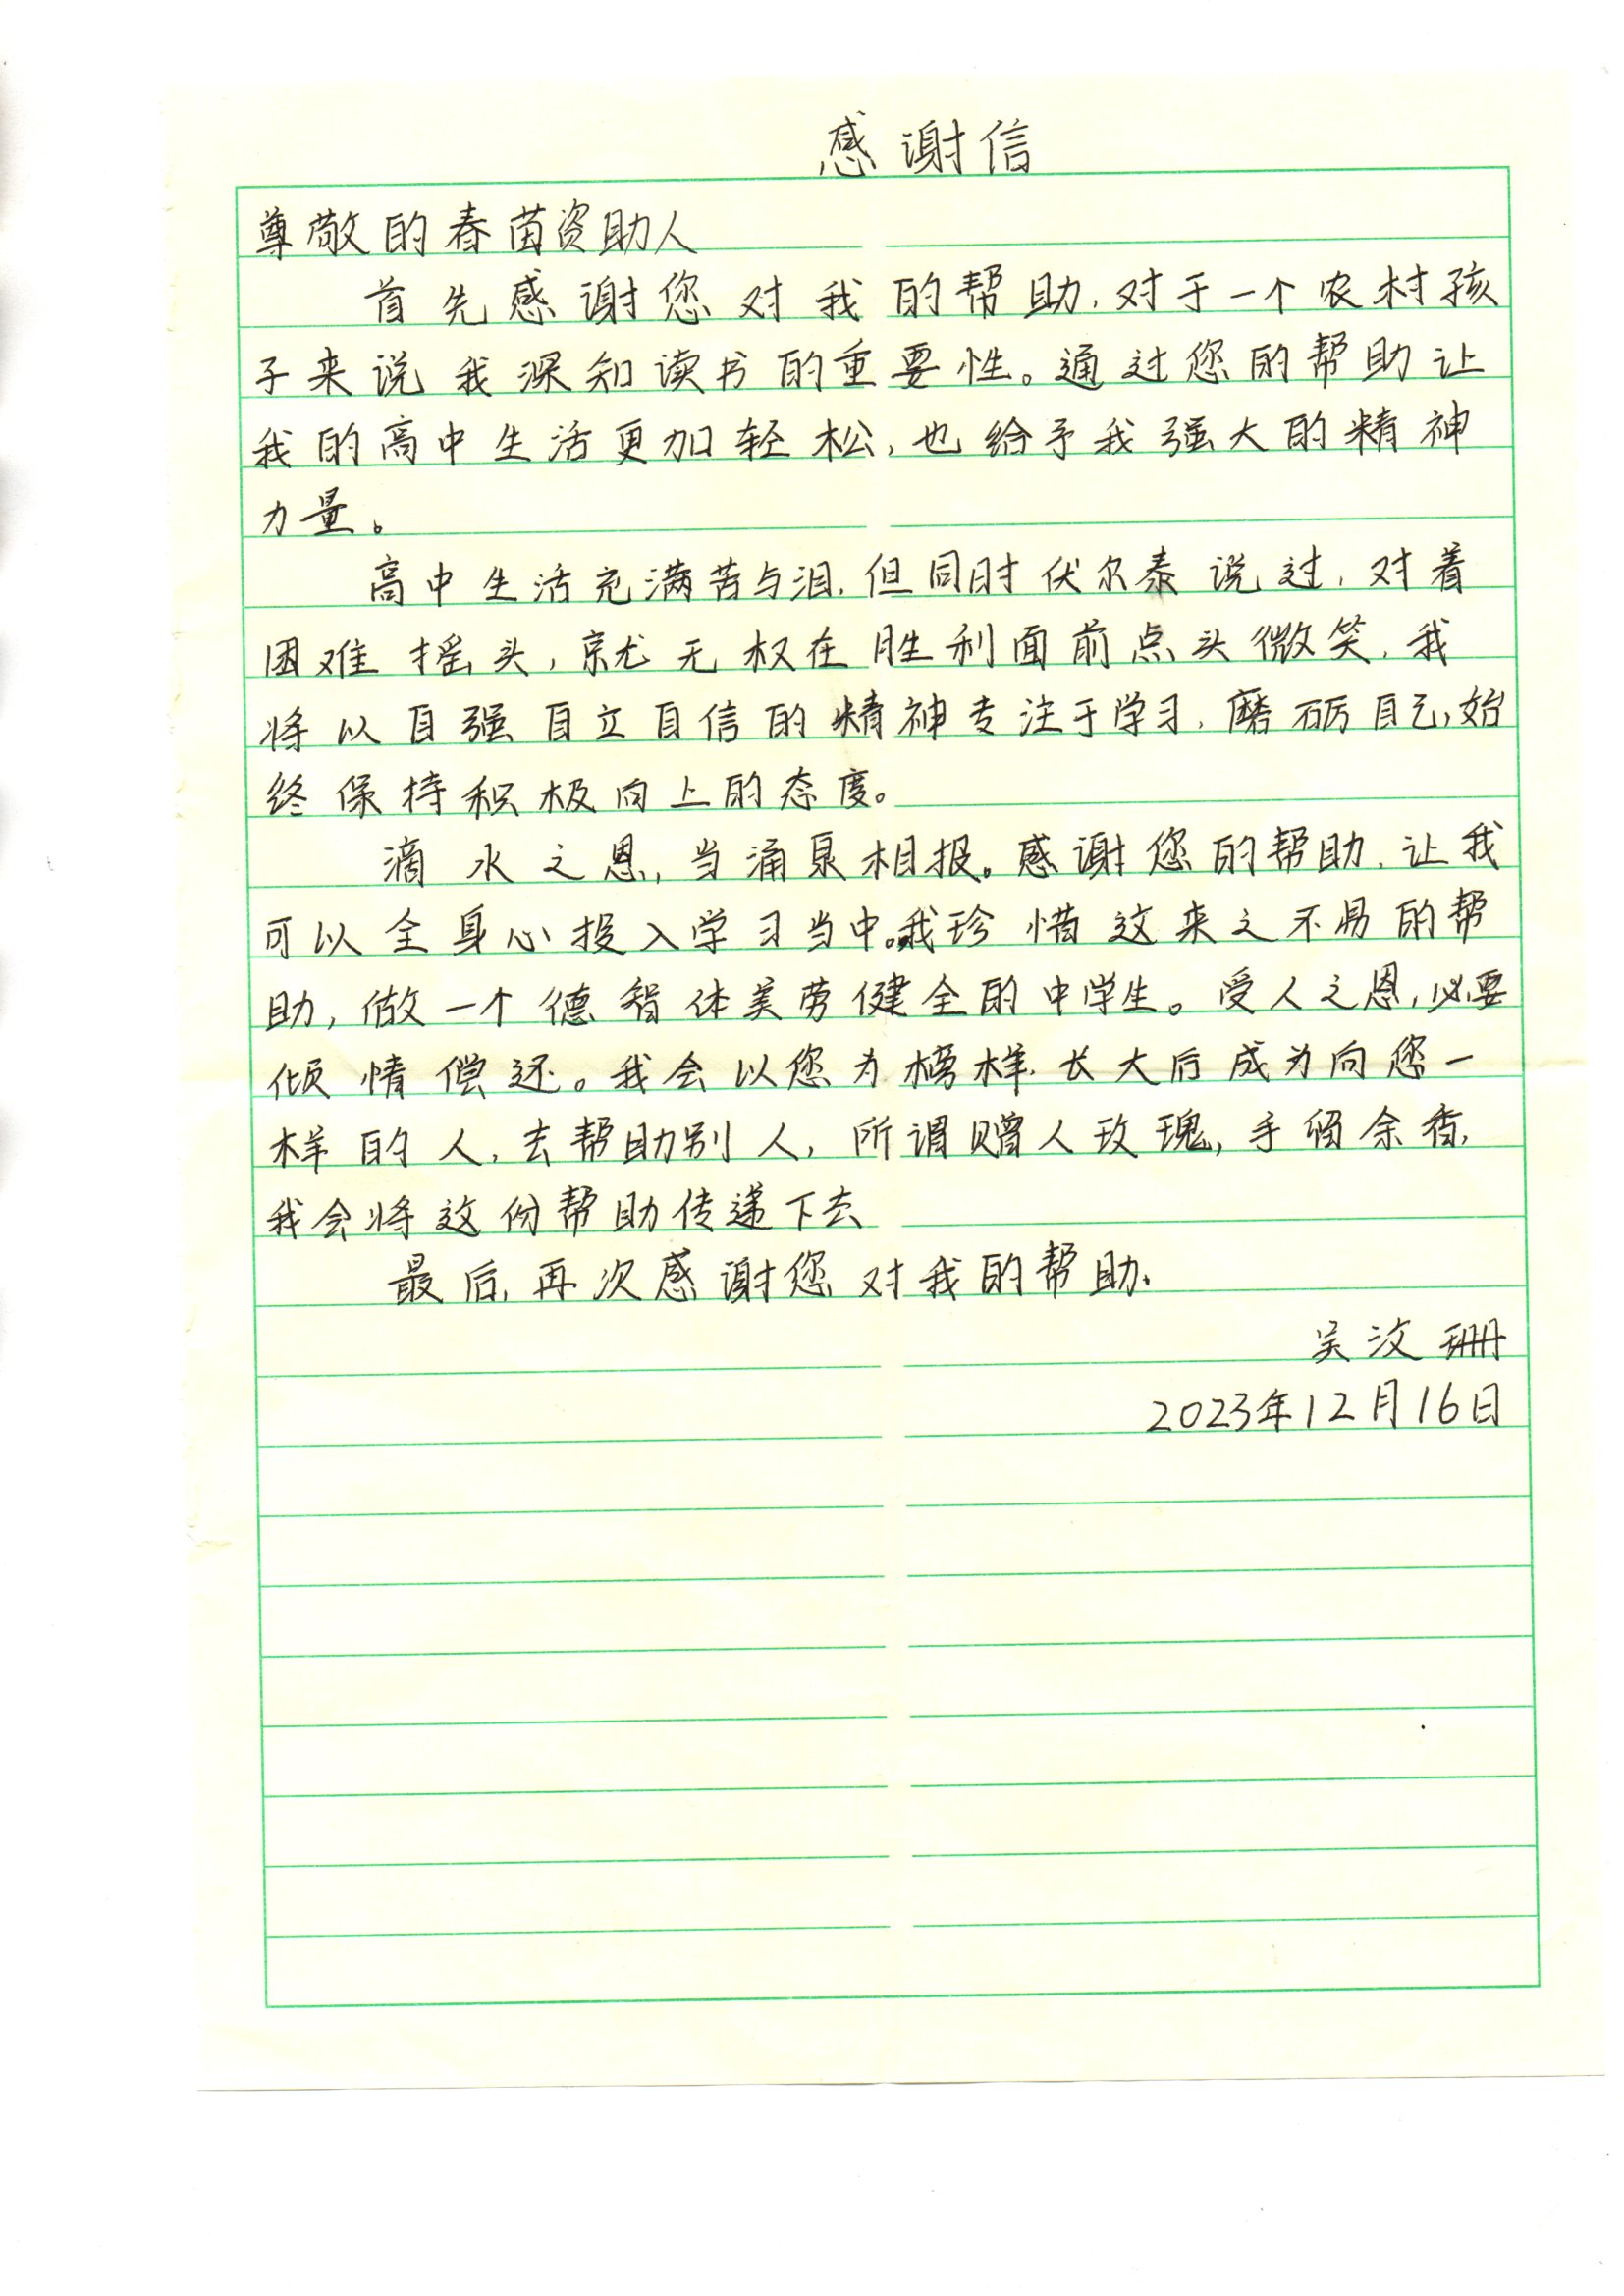 感谢信
尊敬的春苗资助人
首先感谢您对我的帮助,对于一个农村孩
子来说我深知读书的重要性。通过您的帮助让
我的高中生活更加轻松,也给予我强大的精神
力量。
高中生活充满苦与泪,但同时伏尔泰说过,对着
困难摇头,就无权在胜利面前点头微笑,我
将以自强自立自信的精神专注于学习,磨砺自己,始
终保持积极向上的态度。
滴水之恩,当涌泉相报。感谢您的帮助,让我
可以全身心投入学习当中。我珍惜这来之不易的帮
助,做一个德智体美劳健全的中学生。受人之恩,必要
倾情偿还。我会以您为榜样,长大后成为向您一
样的人,去帮助别人,所谓赠人玫瑰,手留余香,
我会将这份帮助传递下去
最后,再次感谢您对我的帮助.
吴汶珊
2023年12月16日